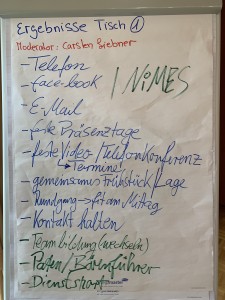 Ergebnisse Tisch 1
Moderator: Carsten Siebner
- Telefon
- face-book
INiMES
- E-Mail
- feste Präsenztage
- feste Video-/Telefonkonferenz
↳ Termine!
- gemeinsames Frühstück/Lage
- Rundgang → fit am Mittag
- Kontakt halten
- Teambildung (wechseln)
- Paten/Bärenführer
- Dienstsport